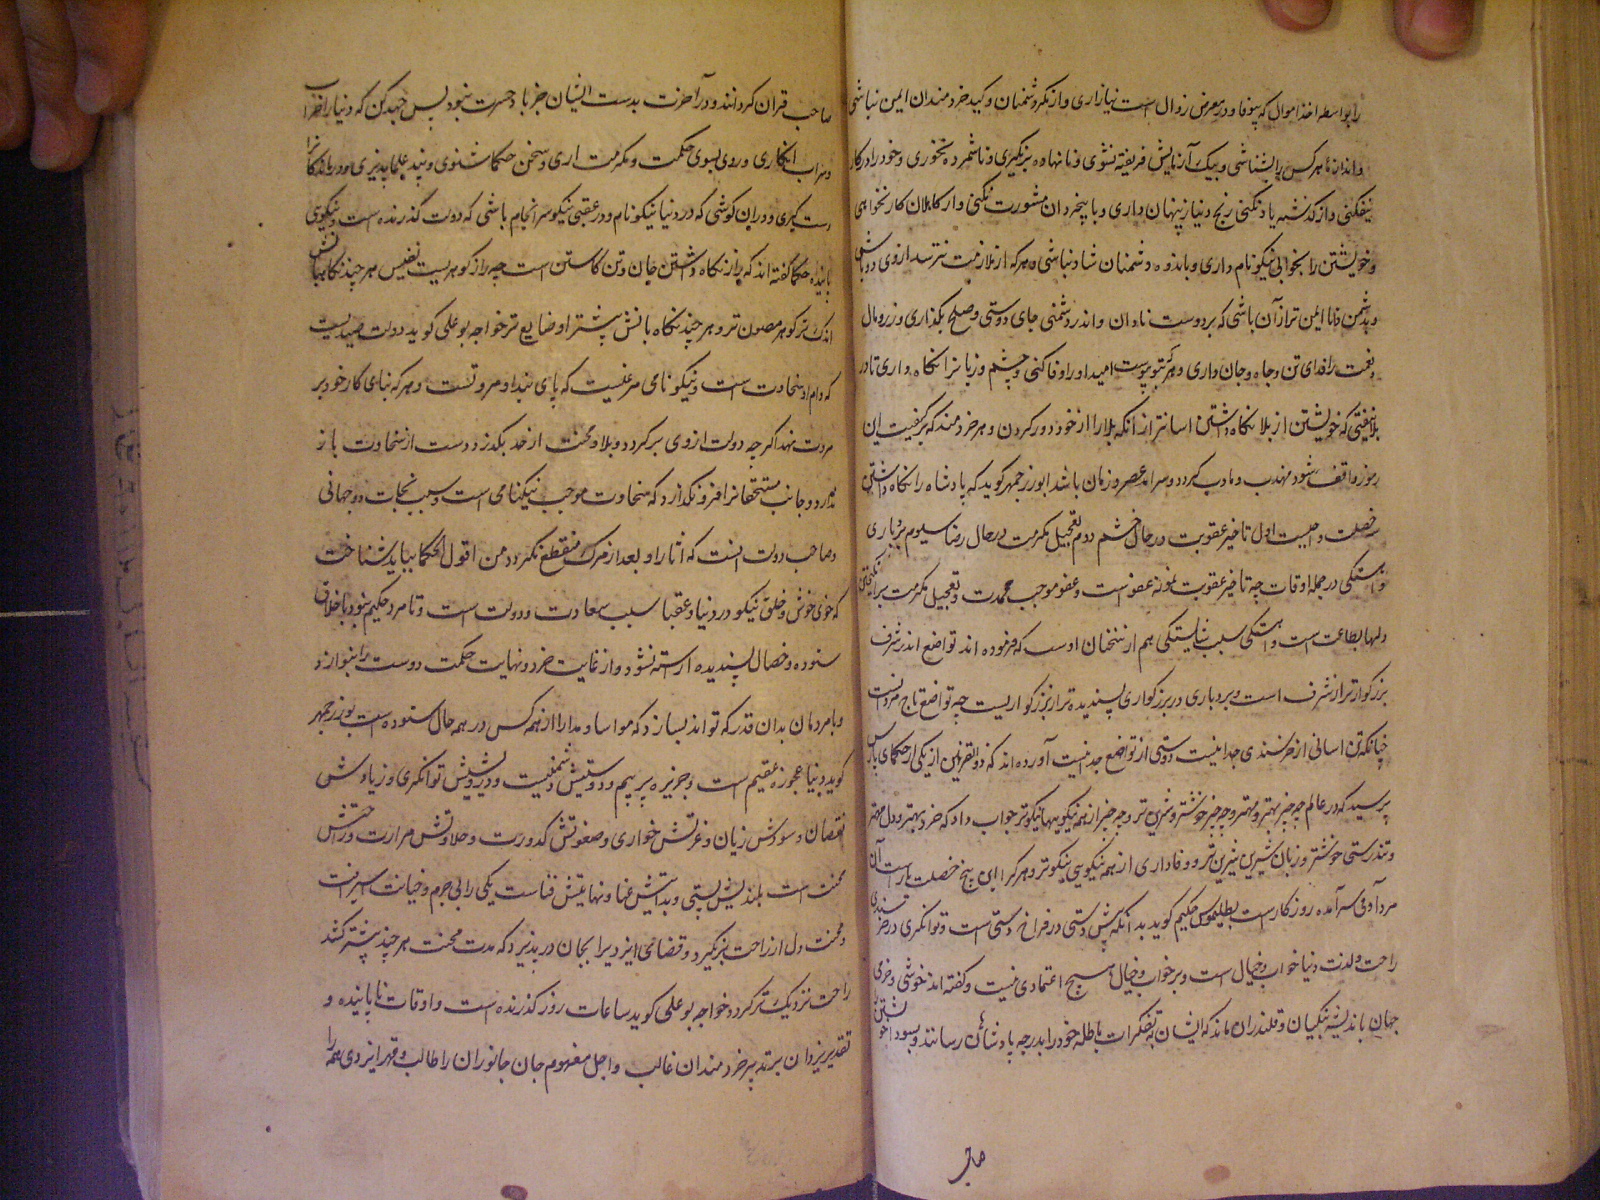 را بواسطه اخذ اموال که بیوفا و در معرض زوال است نیازاری و از مکر دشمنان و کید خردمندان ایمن نباشی
و اندازه هر کس را بشناسی و بیک آزمایش فریفته نشوی و نانهاده برنگیری و ناشمرده نخوری و خود را در کار
نیفکنی و از گذشته یاد نکنی رنج و نیاز پنهان داری و با بیخردان مشورت نکنی و از کاهلان کار نخواهی
و خویشتن را بخوابی نیکونام داری و باندوه دشمنان شاد نباشی و هر که از ملازمت نترسد از وی دور باشی
و بدشمن دانا ایمن تر از آن باشی که بر دوست نادان و اندر دشمنی جای دوستی و صلح بگذاری و زر و مال
و نعمت را فدای تن و جاه و جان داری و هر که بتو پیوست امید او را وفا کنی و چشم و زبان را نگاه داری تا در
بلا نیفتی که خویشتن از بلا نگاه داشتن آسانتر از آنکه بلا را از خود دور کردن و هر خردمند که بر کیفیت این
رموز واقف شود مهذب و مادب گردد و سرآمد عصر و زمان باشد ابوزرجمهر گوید که پادشاه را نگاه داشتن
سه خصلت واجبست اول تاخیر عقوبت در حال خشم دوم تعجیل مکرمت در حال رضا سیوم بردباری
و آهستگی در جمله اوقات چه تاخیر عقوبت نمونه عفو است و عفو موجب محمدت و تعجیل مکرمت برانگیختن
دلها بطاعت است و آهستگی سبب شایستگی هم از سخنان اوست که فرموده اند تواضع اندر شرف
بزرگوارتر از شرف است و بردباری در بزرگواری پسندیده تر از بزرگواریست چه تواضع تاج مردانست
چنانکه تن آسانی از خرسندی جدا نیست دوستی از تواضع جدا نیست آورده اند که ذوالقرنین از یکی از حکمای پارس
پرسید که در عالم چه چیز بهتر و مهتر و چه چیز خوشتر و شیرین تر و چه چیز از همه نیکوییها نیکوتر جواب داد که خرد بهتر و دل مهتر
و تندرستی خوشتر و زبان شیرین شیرین تر و وفاداری از همه نیکویی نیکوتر و هر که را این پنج خصلت هست آن
مرد آدمی سرآمده روزگار است بطلیموس حکیم گوید بدانکه پیش دستی در فراخ دستی است و توانگری در خرسندی
راحت و لذت دنیا خواب و خیال است و بر خواب و خیال هیچ اعتمادی نیست و گفته اند خوشی و خرمی
جهان باندیشه بنگیان و قلندران ماند که ایشان به تفکرات باطله خود را بدرجه پادشاهان رسانند و بسودا خویشتن را
صاحب
صاحب قران گردانند و در آخرت بدست ایشان جز باد حسرت نبود پس جهد کن که دنیا را خراب
و سراب انگاری و روی بسوی حکمت و مکرمت آری و سخن حکما شنوی و پند علما پذیری و درماندگانرا
دست گیری و در آن کوشی که در دنیا نیکونام و در عقبی نیکو سرانجام باشی که دولت گذرنده است و نیکویی
پاینده حکما گفته اند که راز نگاه داشتن جان و تن کاستن است چه راز گوهریست نفیس هر چند نگاهبانش
اندک تر گوهر مصون تر و هر چند نگاه بانش بیشتر او ضایع تر خواجه بوعلی گوید دولت صیدیست
که دام او سخاوت است و نیکونامی مرغیست که پای بند او مروتست و هر که بنای کار خود بر
مروت نهد اگر چه دولت از وی برگردد و بلا و محنت از حد بگذرد دست از سخاوت باز
ندارد و جانب مستحقانرا فرو نگذارد که سخاوت موجب نیکنامی است و سبب نجات دو جهانی
و صاحب دولت آنست که آثار او بعد از مرگ منقطع نگردد من اقول الحکما بباید شناخت
که خوی خوش و خلق نیکو در دنیا و عقبا سبب سعادت و دولت است و تا مرد حکیم نبود باخلاق
ستوده و خصال پسندیده آراسته نشود و از غایت خرد و نهایت حکمت دوست را بنوازد
و با مردمان بدان قدر که تواند بسازد که مواسا و مدارا از همه کس در همه حال ستوده است بوزرجمهر
گوید دنیا عجوزه عقیم است و جزیره پر بیم و دوستیش دشمنیست و درویشیش توانگری و زیادتش
نقصان و سودش زیان و عزتش خواری و صفوتش کدورت و حلاوتش مرارت و راحتش
محنت است بلندیش پستی و بدایتش غنا و نهایتش فناست یکی را بی جرم و خیانت اسیر انست
و محنت دل از راحت بر نگیرد و قضای ایزدیرا بجان در پذیرد که مدت محنت هر چند بیشتر کشد
راحت نزدیک تر گردد خواجه بوعلی گوید ساعات روز گذرنده است و اوقات ناپاینده و
تقدیر یزدان بر تدبیر خردمندان غالب و اجل مفهوم جان جانوران را طالب و قهر ایزدی همه را